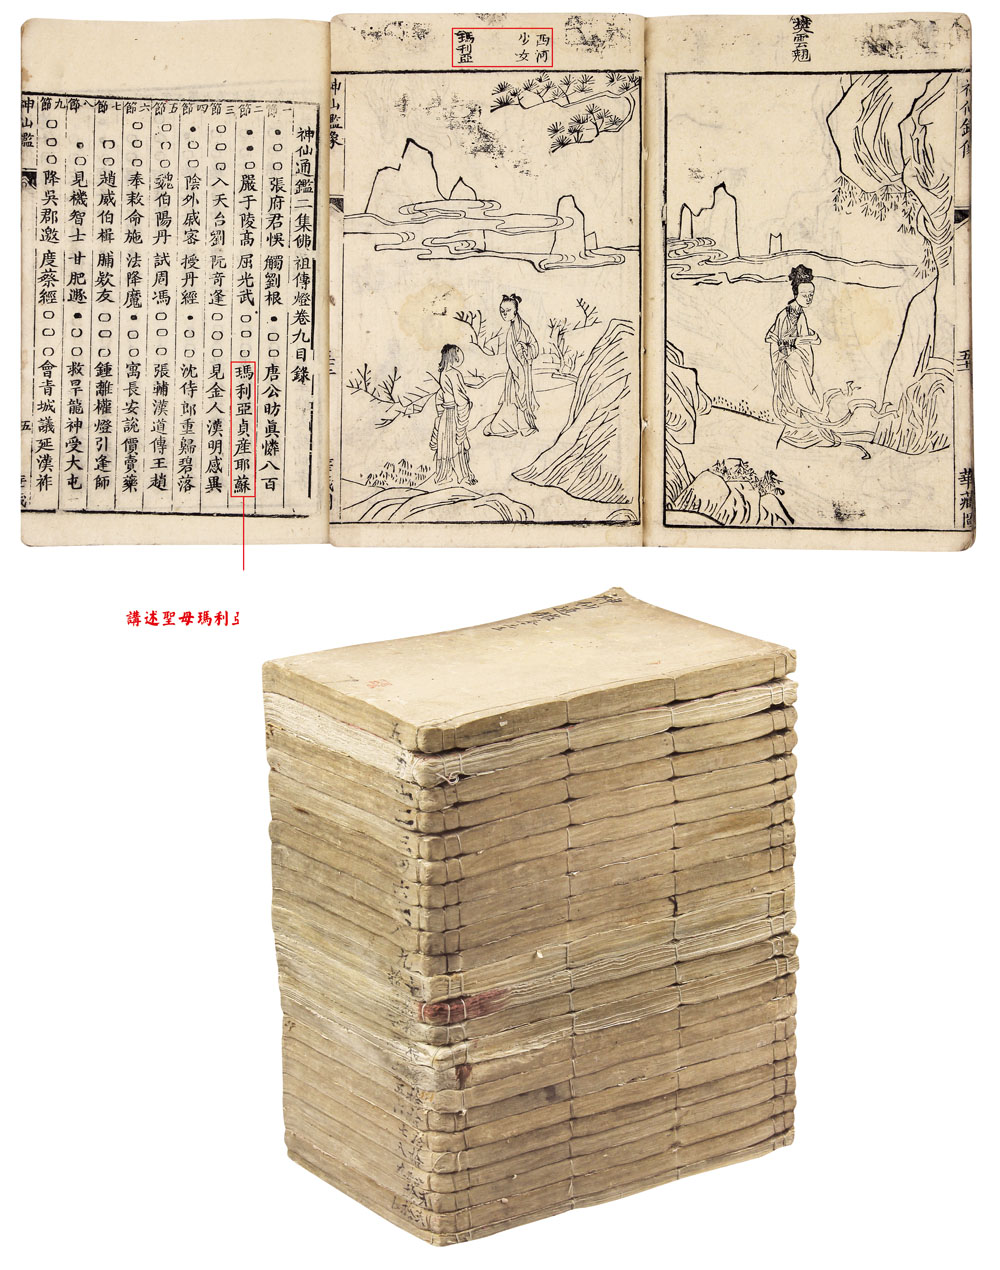 樊雲翹
神仙鑑像
五十
華藏
西河
少女
瑪利亞
神仙鑑像
神仙通鑑二集佛祖傳燈卷九目錄
一節 張府君悞觸劉根 唐公昉眞憐八百
二節 嚴子陵高屈光武 瑪利亞貞産耶蘇
三節 入天台劉阮奇逢 見金人漢明感異
四節 陰外戚密授丹經 沈侍郎重歸碧落
五節 魏伯陽丹試周馮 張輔漢道傳王趙
六節 奉敕命施法降魔 寓長安說價賣藥
七節 趙威伯楫脯欸友 鍾離權燈引逢師
八節 見機智士甘肥遯 救旱龍神受大屯
九節 降吳郡邀度蔡經 會青城議延漢祚
神仙鑑
五
講述聖母瑪利